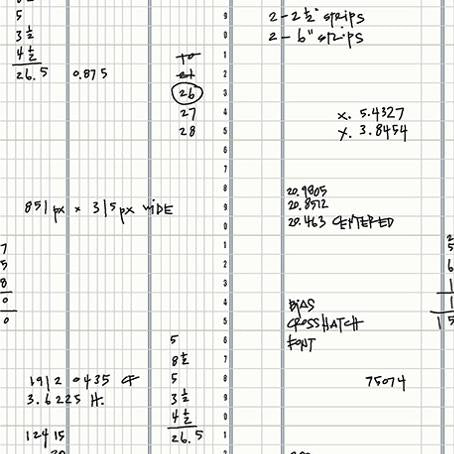 5
3 ½
4 ½
26.5 0.875
26
27
28
2 - 2 ½" strips
2 - 6" strips
X. 5.4327
Y. 3.8454
851 px x 315 px WIDE
20.9805
20.8512
20.463 CENTERED
7
5
8
0
0
BIAS
CROSSHATCH
FONT
5
8 ½
5
3 ½
4 ½
26.5
1912 0435 CF
3.6225 H.
12415
75074
9
0
1
2
3
4
5
6
7
8
9
0
1
2
3
4
5
6
7
8
9
0
1
2
5
6
1
1
15